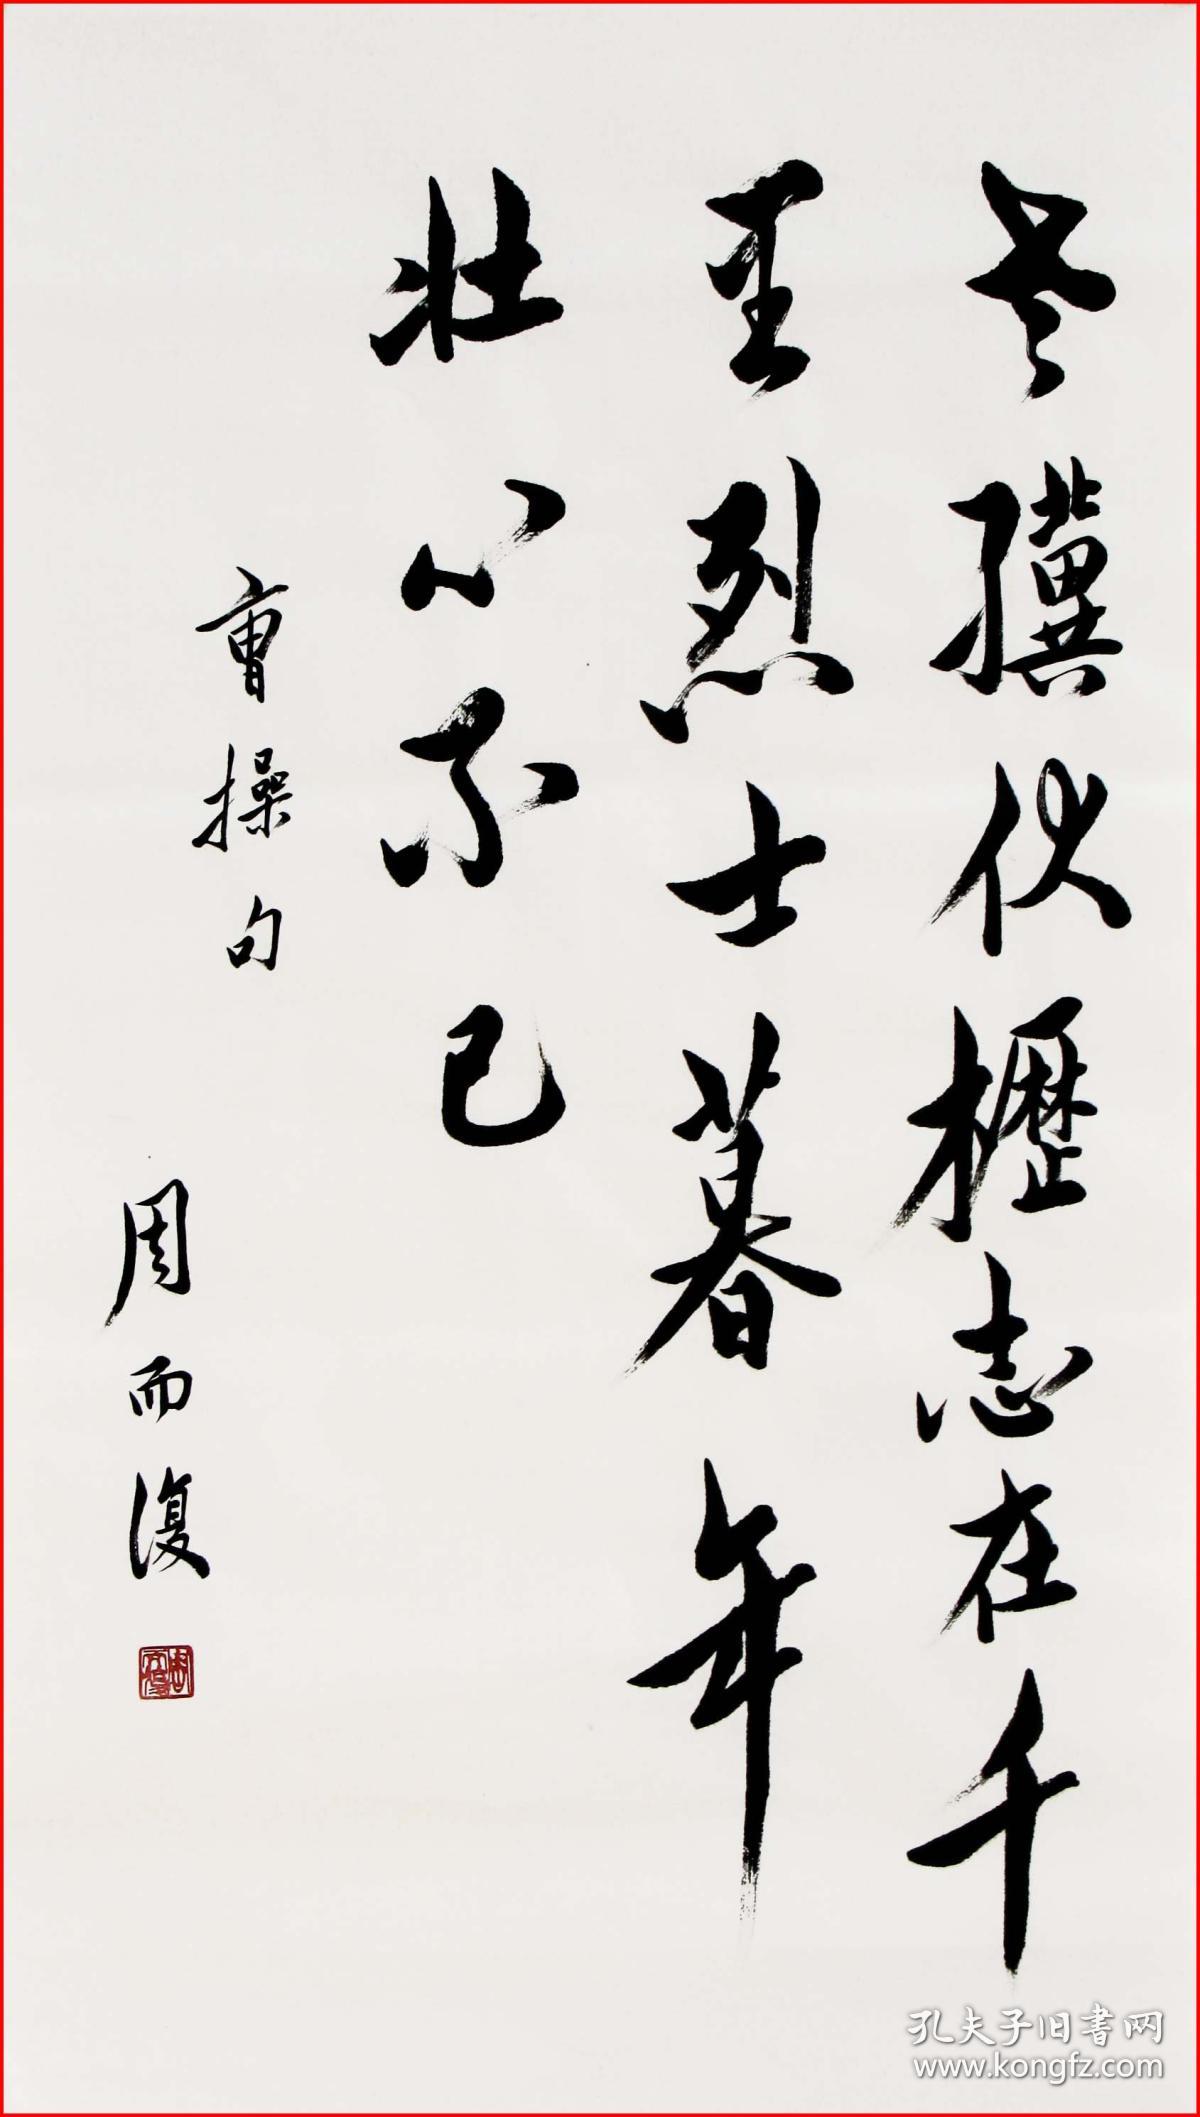 老驥伏櫪志在千
里烈士暮年
壯心不已
曹操句
周而復
孔夫子旧書网
www.kongfz.com